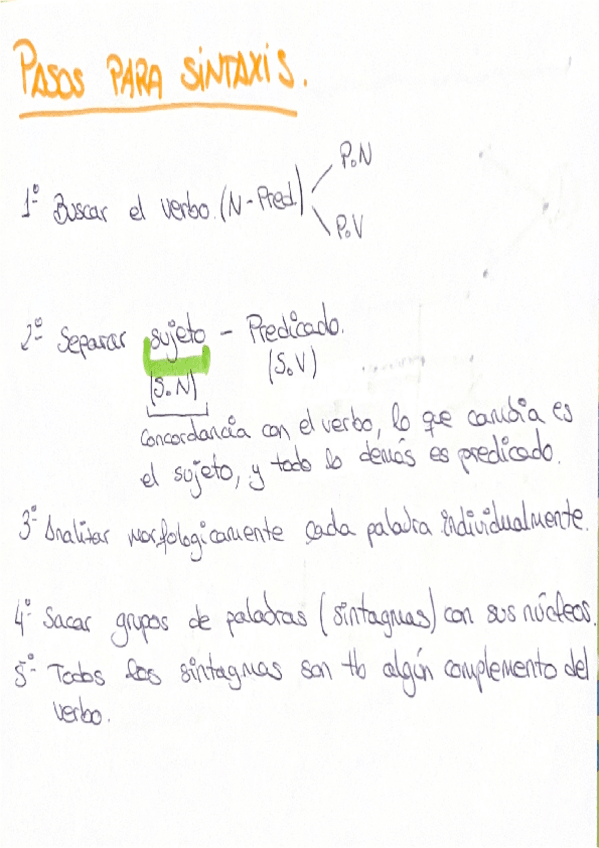 PASOS PARA SINTAXIS.
P.N
1º Buscar el verbo. (N-Pred.)
P.V
2º Separar sujeto - Predicado.
(S.N) (S.V)
Concordancia con el verbo, lo que cambia es
el sujeto, y todo lo demás es predicado.
3º Analizar morfologicamente cada palabra individualmente.
4º Sacar grupos de palabras (sintagmas) con sus núcleos.
5º Todos los sintagmas son tb algún complemento del
verbo.